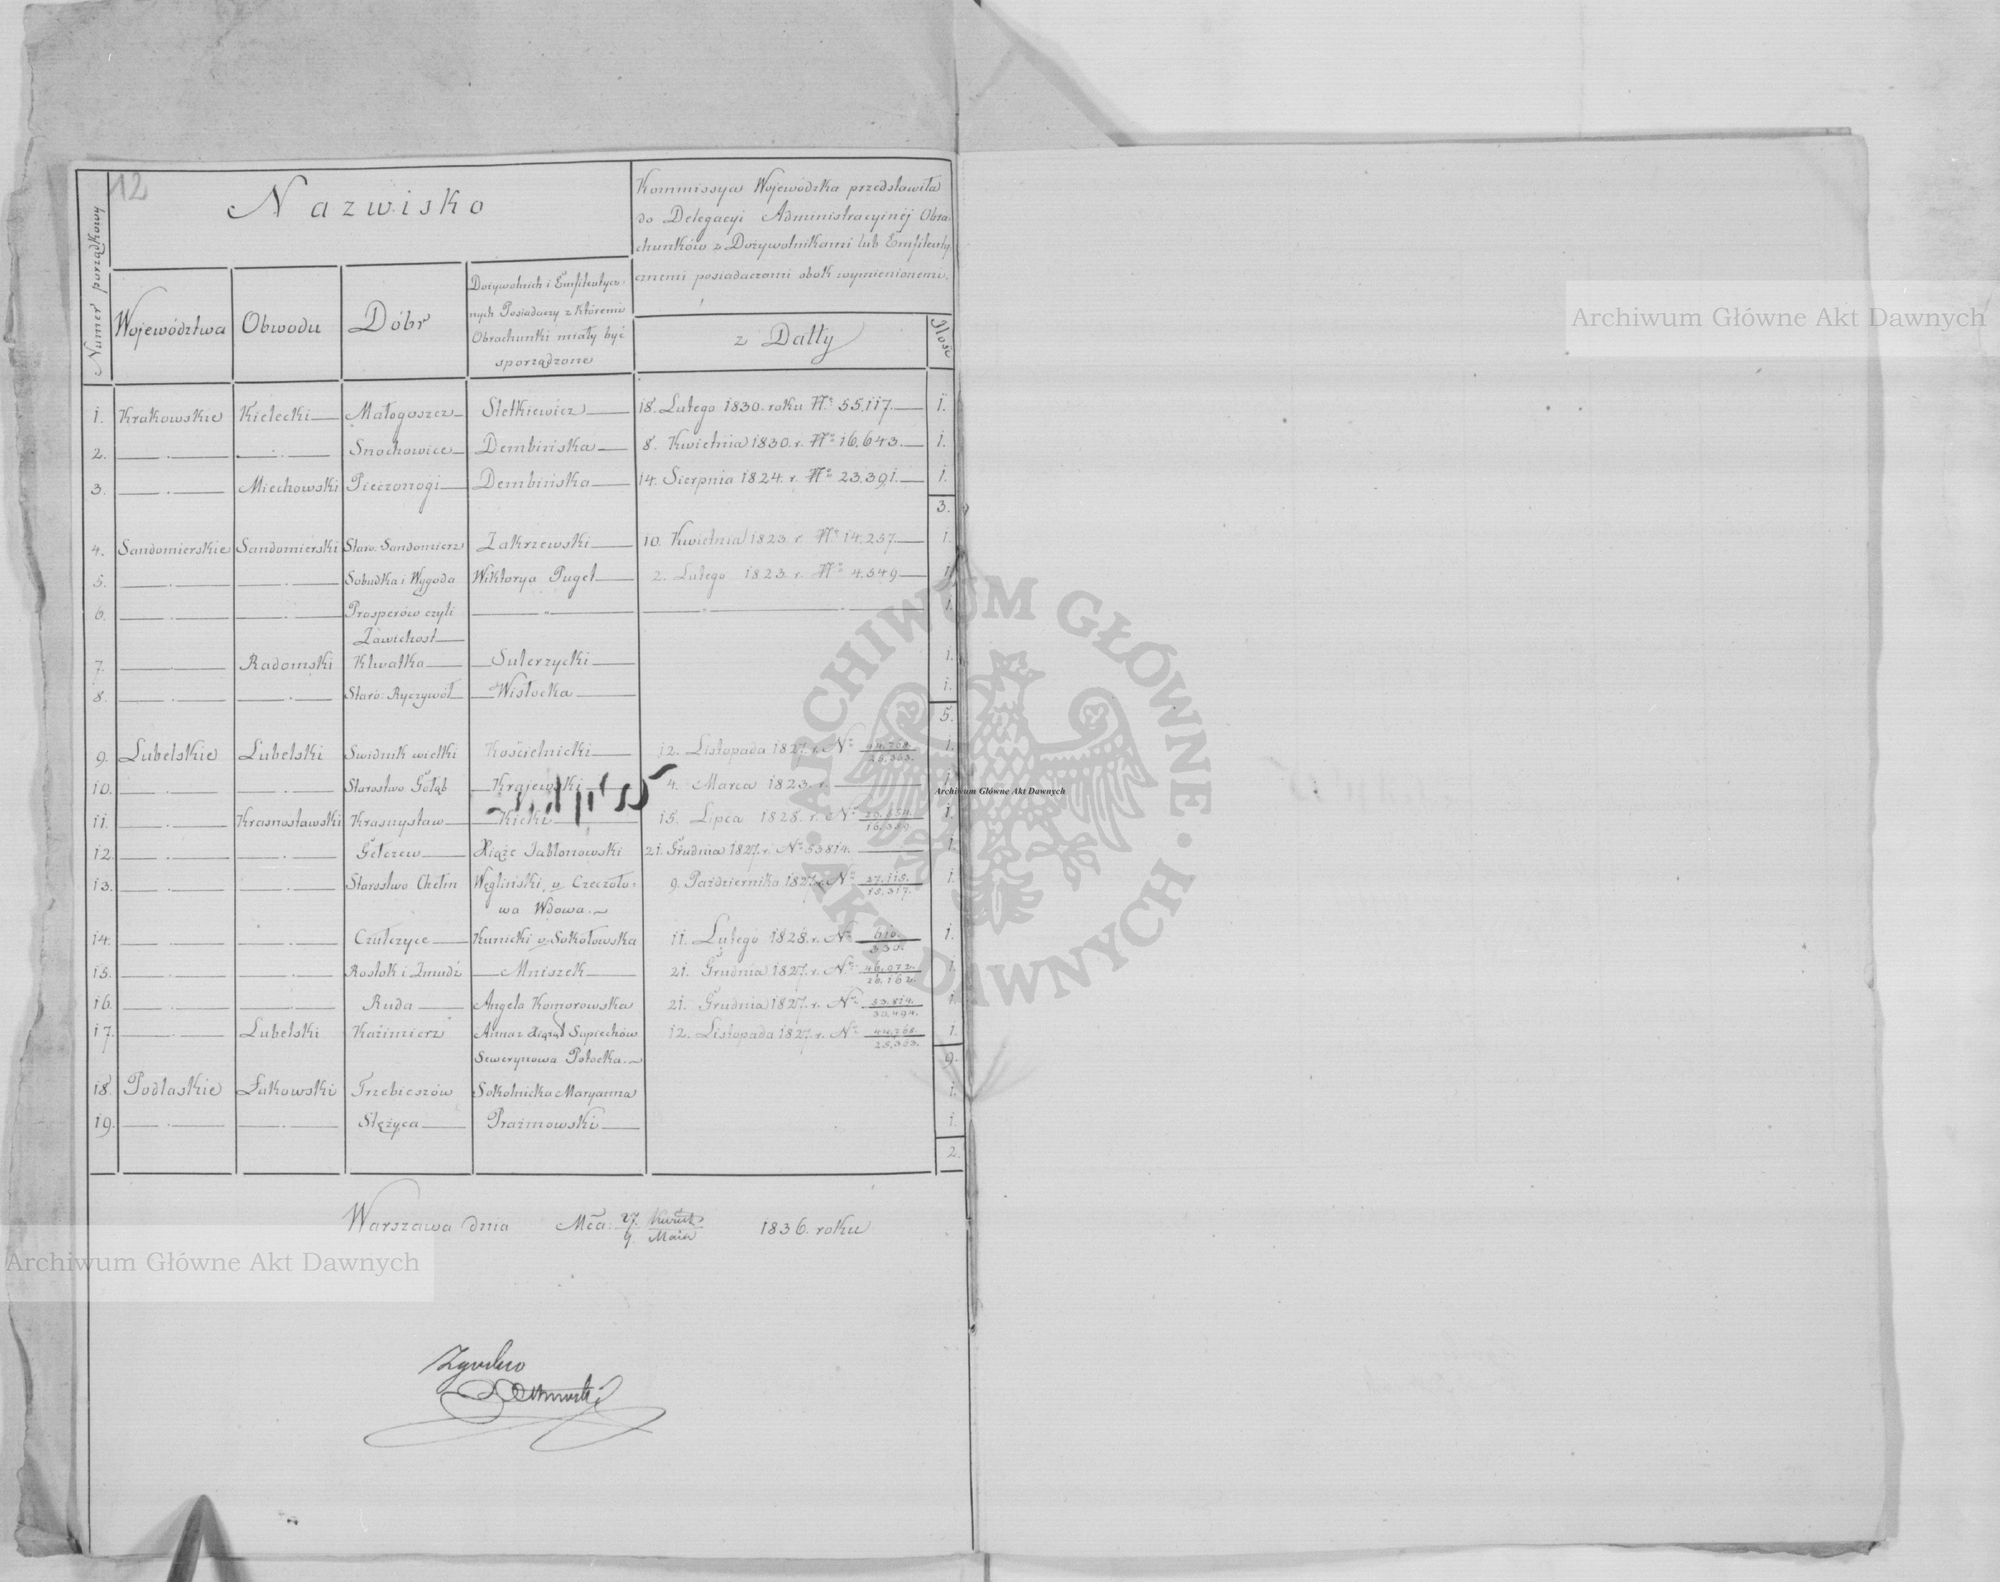 12
Numer porządkowy
Nazwisko
Kommissya Wojewódzka przedstawiła
do Delegacyi Administracyinéj Obra-
chunków z Dożywotnikami lub Emfiteuty-
cznemi posiadaczami obok wymienionemi.
Województwa Obwodu Dóbr
Dożywotnich i Emfiteutycz-
nych Posiadaczy z któremi
Obrachunki miały być
sporządzone
z Datty
Ilość
1. Krakowskie Kielecki Małogoszcz Stetkiewicz 18. Lutego 1830. roku No 55,117. 1.
2. Snochowice Dembińska 8. Kwietnia 1830. r. No 16,643. 1.
3. Miechowski Pieczonogi Dembińska 14. Sierpnia 1824. r. No 23.391. 1.
3.
4. Sandomierskie Sandomierski Staro. Sandomierz Zakrzewski 10. Kwietnia 1823. r. No 14,257. 1.
5. Sobudka i Wygoda Wiktorya Puget 2. Lutego 1823. r. No 4.549 1.
6. Prosperów czyli 1.
Zawichost
7. Radomski Klwatka Suterzycki 1.
8. Staro: Ryczywół Wisłocka 1.
5.
9. Lubelskie Lubelski Swidnik wielki Kościelnicki 12. Listopada 1827. r. No 44,768. 1.
25,353.
10. Starostwo Gołąb Krajewski 4. Marca 1823. r. 1.
11. Krasnostawski Krasnystaw Kicki 15. Lipca 1828. r. No 1.
16,359.
12. Gełczew Xiąże Jabłonowski 21. Grudnia 1827. r. No 53814. 1.
13. Starostwo Chełm Węgliński v. Czeczoto- 9. Października 1827. r. No 27,115. 1.
15,317.
wa Wdowa.
14. Czułczyce Kunicki v. Sokołowska 11. Lutego 1828. r. No 610. 1.
335.
15. Rostok i Zmudź Mniszek 21. Grudnia 1827. r. No 46,072. 1.
26,162.
16. Ruda Angela Komorowska 21. Grudnia 1827. r. No 53.814. 1.
30,494.
17. Lubelski Kaźimierz Anna z Xiążąt Sapiechów 12. Listopada 1827. r. No 44,768. 1.
25,353.
Sewerynowa Potocka. 9.
18. Podlaskie Łukowski Trzebieszów Sokolnicka Maryanna 1.
19. Stężyca Prażmowski 1.
2.
Warszawa dnia Mca 27. Kwiet. 1836. roku
9. Maia
Archiwum Główne Akt Dawnych
Archiwum Główne Akt Dawnych
Archiwum Główne Akt Dawnych
ARCHIWUM GŁÓWNE
AKT DAWNYCH